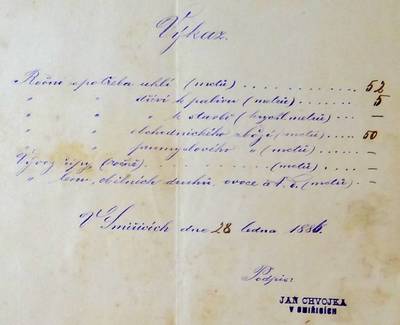 Výkaz.
Roční spotřeba uhlí (metrů) . . . . . . . . . . 52
" " dříví k palivu (metrů) . . . . . . . 5
" " " k stavbě ( metrů) . . . . . —
" " obchodnického zboží (metrů) . . . . 50
" " průmyslového " (metrů) . . . . . —
Vývoz řípy (ročně) . . . . . . . . . (metrů) . . . . —
" obilních druhů, ovoce a t. d. (metrů) . . —
V Smiřicích dne 28 ledna 1886.
Podpis:
JAN CHVOJKA
V SMIŘICÍCH